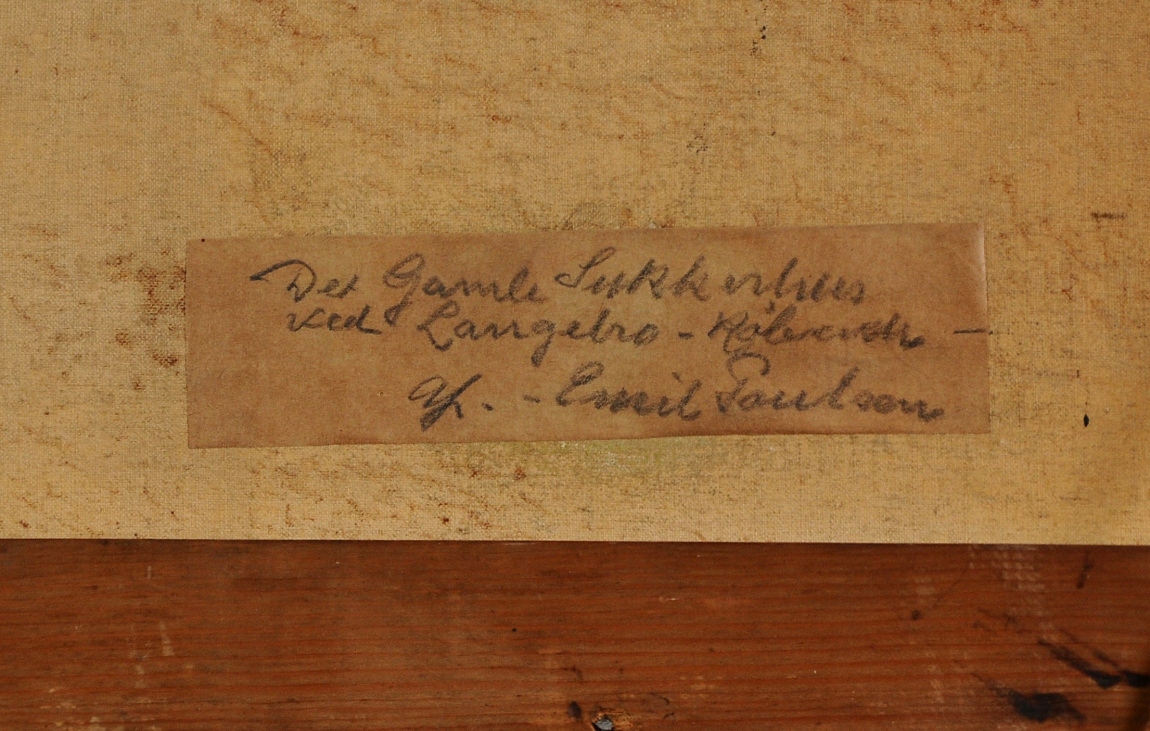 Det Gamle Sukkerhus
ved Langebro - Köbenh -
Af. - Emil Poulsen